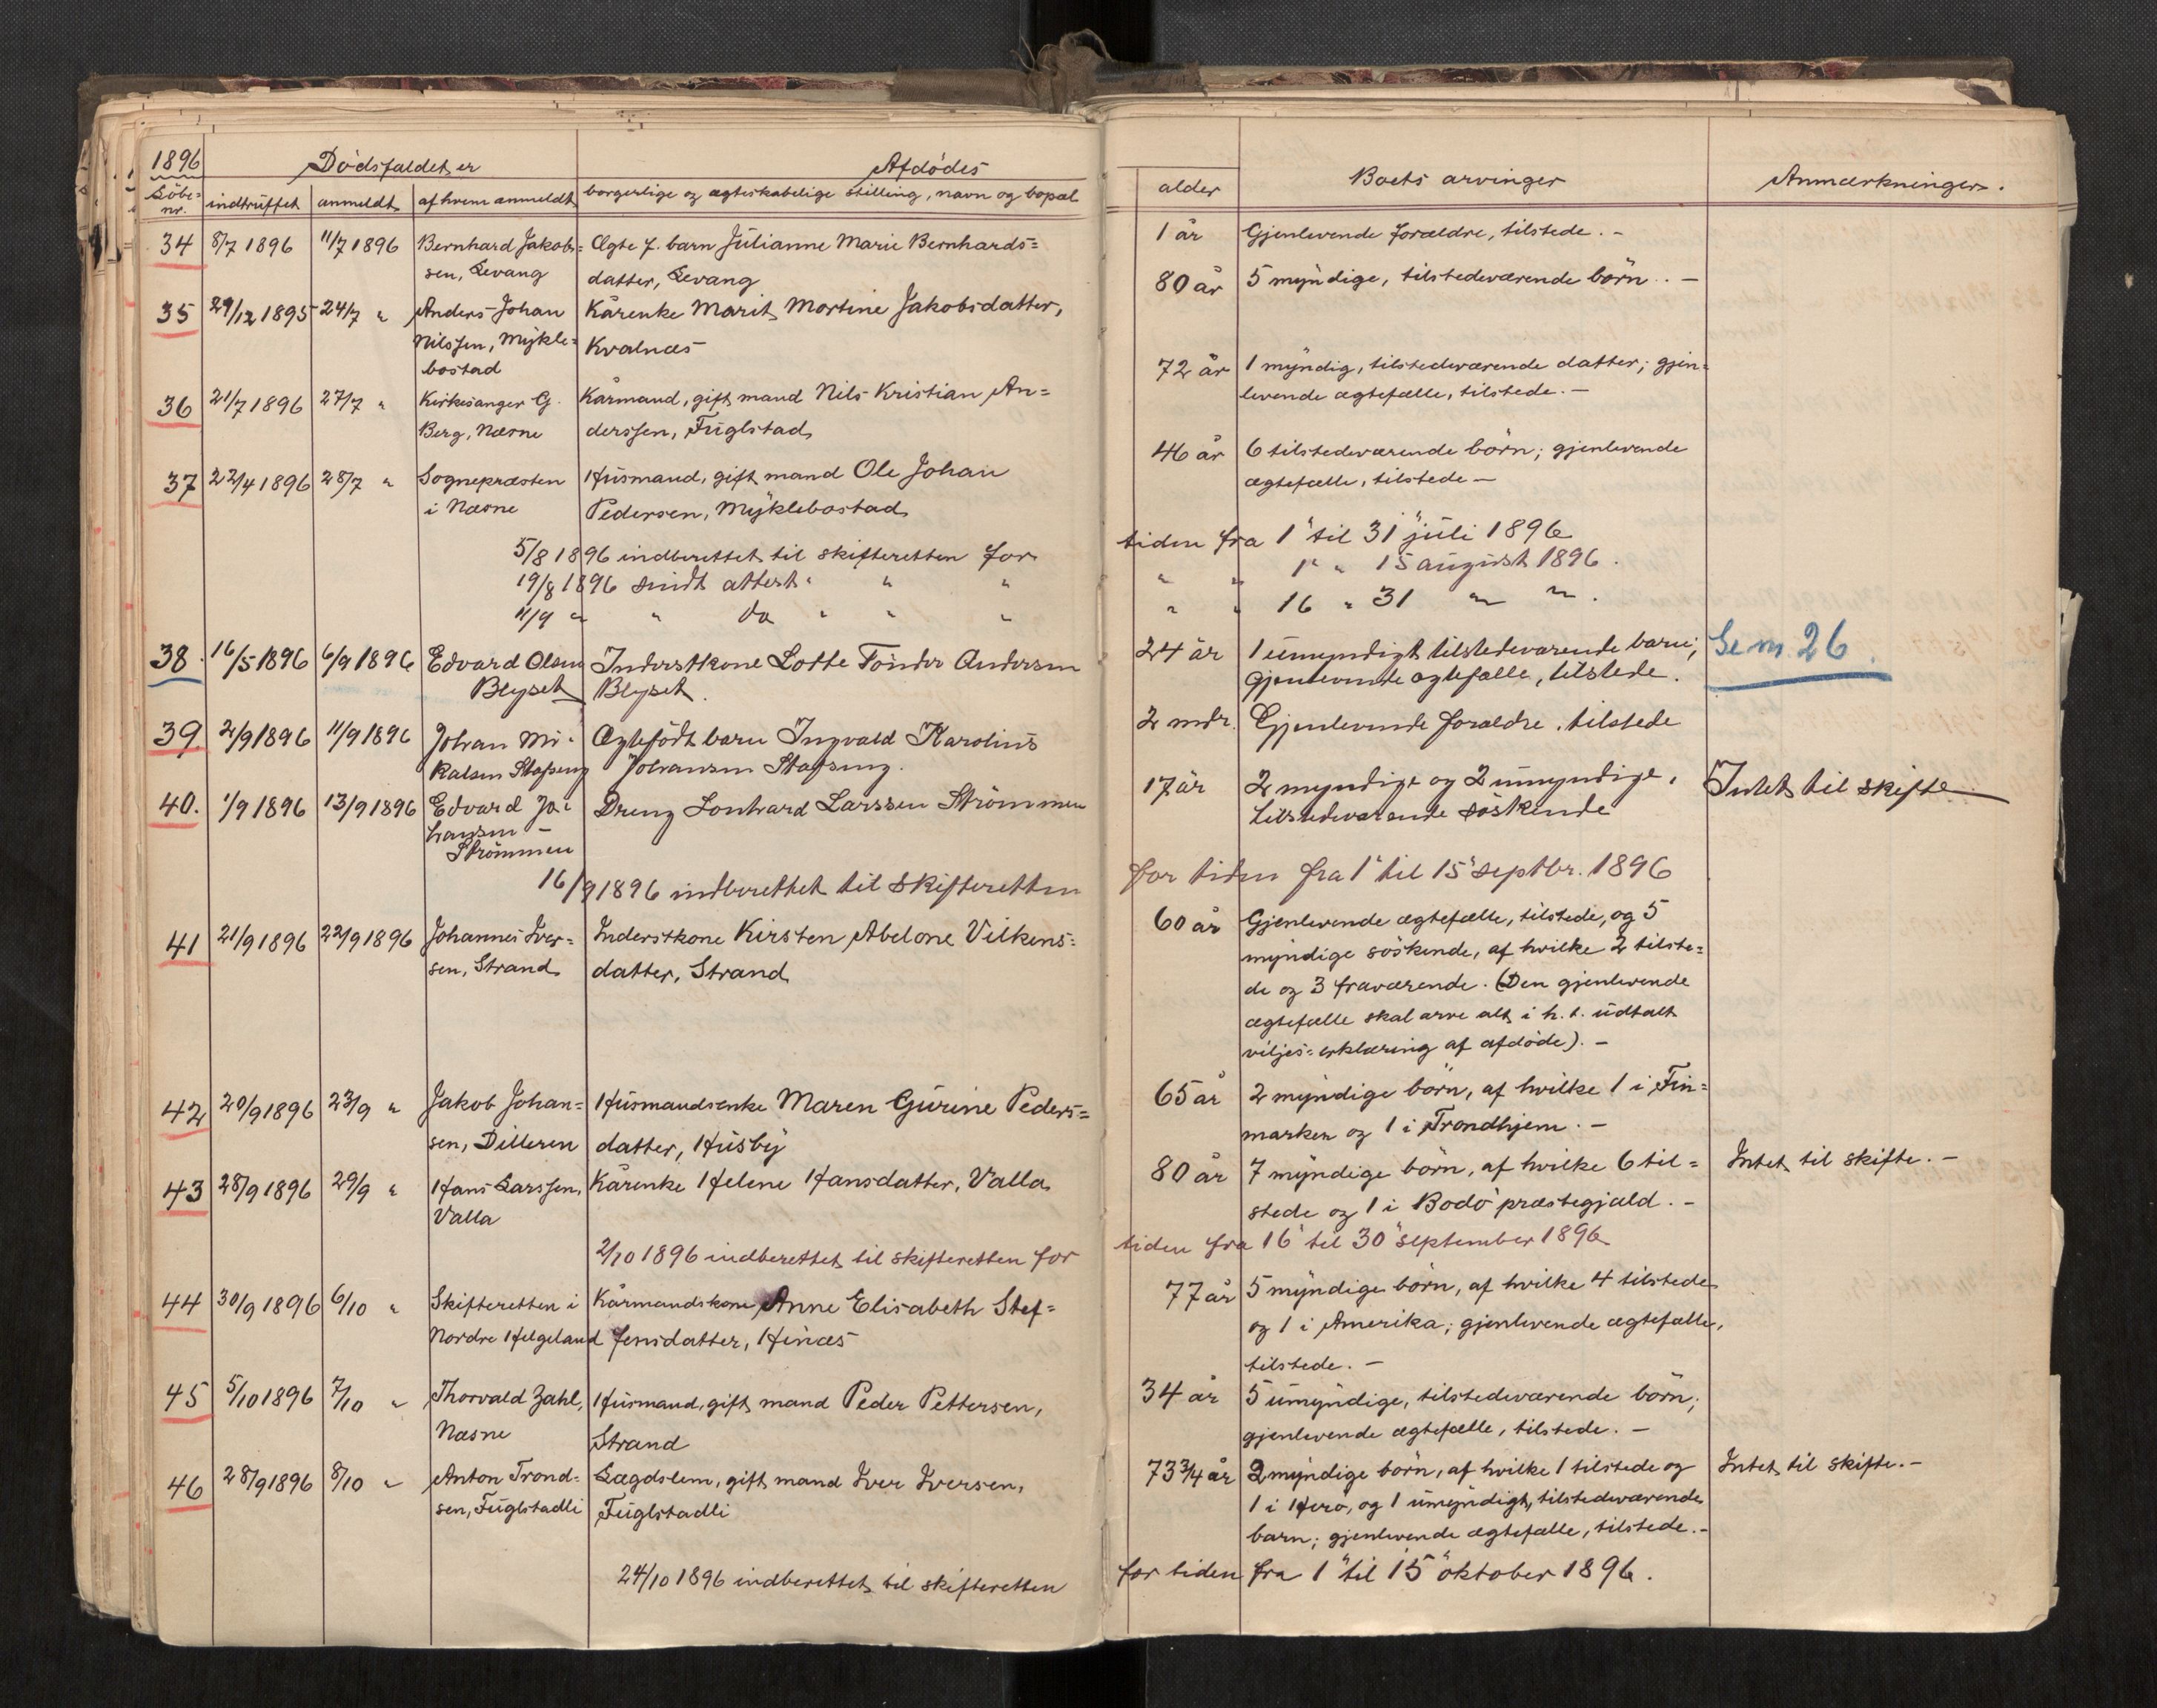 1896
Dödsfaldet er
Afdödes
alder
Boets arvinger
Anmærkninger.
Löbe=
nr.
indtruffet
anmeldt
af hvem anmeldt
borgerlige og ægteskabelige stilling, navn og bopæl
34 8/7 1896 11/7 1896 Bernhard Jakob= Ægte f. barn Julianne Marie Bernhards= 1 år Gjenlevende forældre, tilstede. -
sen, Levang datter, Levang
35 29/12 1895 24/7 " Anders Johan Kårenke Marit Mortine Jakobsdatter, 80 år 5 myndige, tilstedeværende börn. -
Nilssen, Mykle= Kvalnæs
bostad
36 21/7 1896 27/7 " Kirkesanger G. Kårmand, gift mand Nils Kristian An= 72 år 1 myndig, tilstedeværende datter; gjen=
Berg, Næsne derssen, Fuglstad levende ægtefælle, tilstede. -
37 22/4 1896 28/7 " Sognepræsten Husmand, gift mand Ole Johan 46 år 6 tilstedeværende börn; gjenlevende
i Næsne Pedersen, Myklebostad ægtefælle, tilstede -
5/8 1896 indberettet til skifteretten for tiden fra 1" til 31" juli 1896
19/8 1896 sendt attest " " " " " 1" " 15 august 1896.
11/9 " " do " " " " " 16 " 31 " ".
38. 16/5 1896 6/9 1896 Edvard Olsen Inderstkone Lotte Tönder Andersen 24 år 1 umyndigt tilstedeværende barn; Se nr. 26.
Blyset Blyset. gjenlevende ægtefælle, tilstede.
39 2/9 1896 11/9 1896 Johan Mi= Ægtefödt barn Ingvald Karolius 2 mdr. Gjenlevende forældre, tilstede
kalsen Stapseng Johansen Stapseng.
40. 1/9 1896 13/9 1896 Edvard Jo= Dreng Lonhard Larssen Strömmen 17 år 2 myndige og 2 umyndige, Intet til skifte
hansen - tilstedeværende söskende
Strömmen
16/9 1896 indberettet til skifteretten for tiden fra 1" til 15" septbr. 1896
41 21/9 1896 22/9 1896 Johannes Iver= Inderstkone Kirsten Abelone Vilkens= 60 år Gjenlevende ægtefælle, tilstede, og 5
sen, Strand datter, Strand myndige söskende, af hvilke 2 tilste=
de og 3 fraværende. (Den gjenlevende
ægtefælle skal arve alt i h. t. udtalt
viljes=erklæring af afdöde). -
42 20/9 1896 23/9 " Jakob Johan= Husmandsenke Maren Gurine Peders= 65 år 2 myndige börn, af hvilke 1 i Fin=
sen, Dilleren datter, Husby marken og 1 i Trondhjem. -
43 28/9 1896 29/9 " Hans Larssen, Kårenke Helene Hansdatter, Valla 80 år 7 myndige börn, af hvilke 6 til= Intet til skifte. -
Valla stede og 1 i Bodö præstegjæld. -
2/10 1896 indberettet til skifteretten for tiden fra 16" til 30" september 1896
44 30/9 1896 6/10 " Skifteretten i Kårmandskone Anne Elisabeth Stef= 77 år 5 myndige börn, af hvilke 4 tilstede
Nordre Helgeland fensdatter, Hinæs og 1 i Amerika; gjenlevende ægtefælle,
tilstede. -
45 5/10 1896 7/10 " Thorvald Zahl, Husmand, gift mand Peder Pettersen, 34 år 5 umyndige, tilstedeværende börn;
Næsne Strand gjenlevende ægtefælle, tilstede. -
46 28/9 1896 8/10 " Anton Trond= Lægdslem, gift mand Iver Iversen, 73 3/4 år 2 myndige börn, af hvilke 1 tilstede og Intet til skifte. -
sen, Fuglstadli Fuglstadli 1 i Herö, og 1 umyndigt, tilstedeværende
barn; gjenlevende ægtefælle, tilstede. -
24/10 1896 indberettet til skifteretten for tiden fra 1" til 15" oktober 1896.